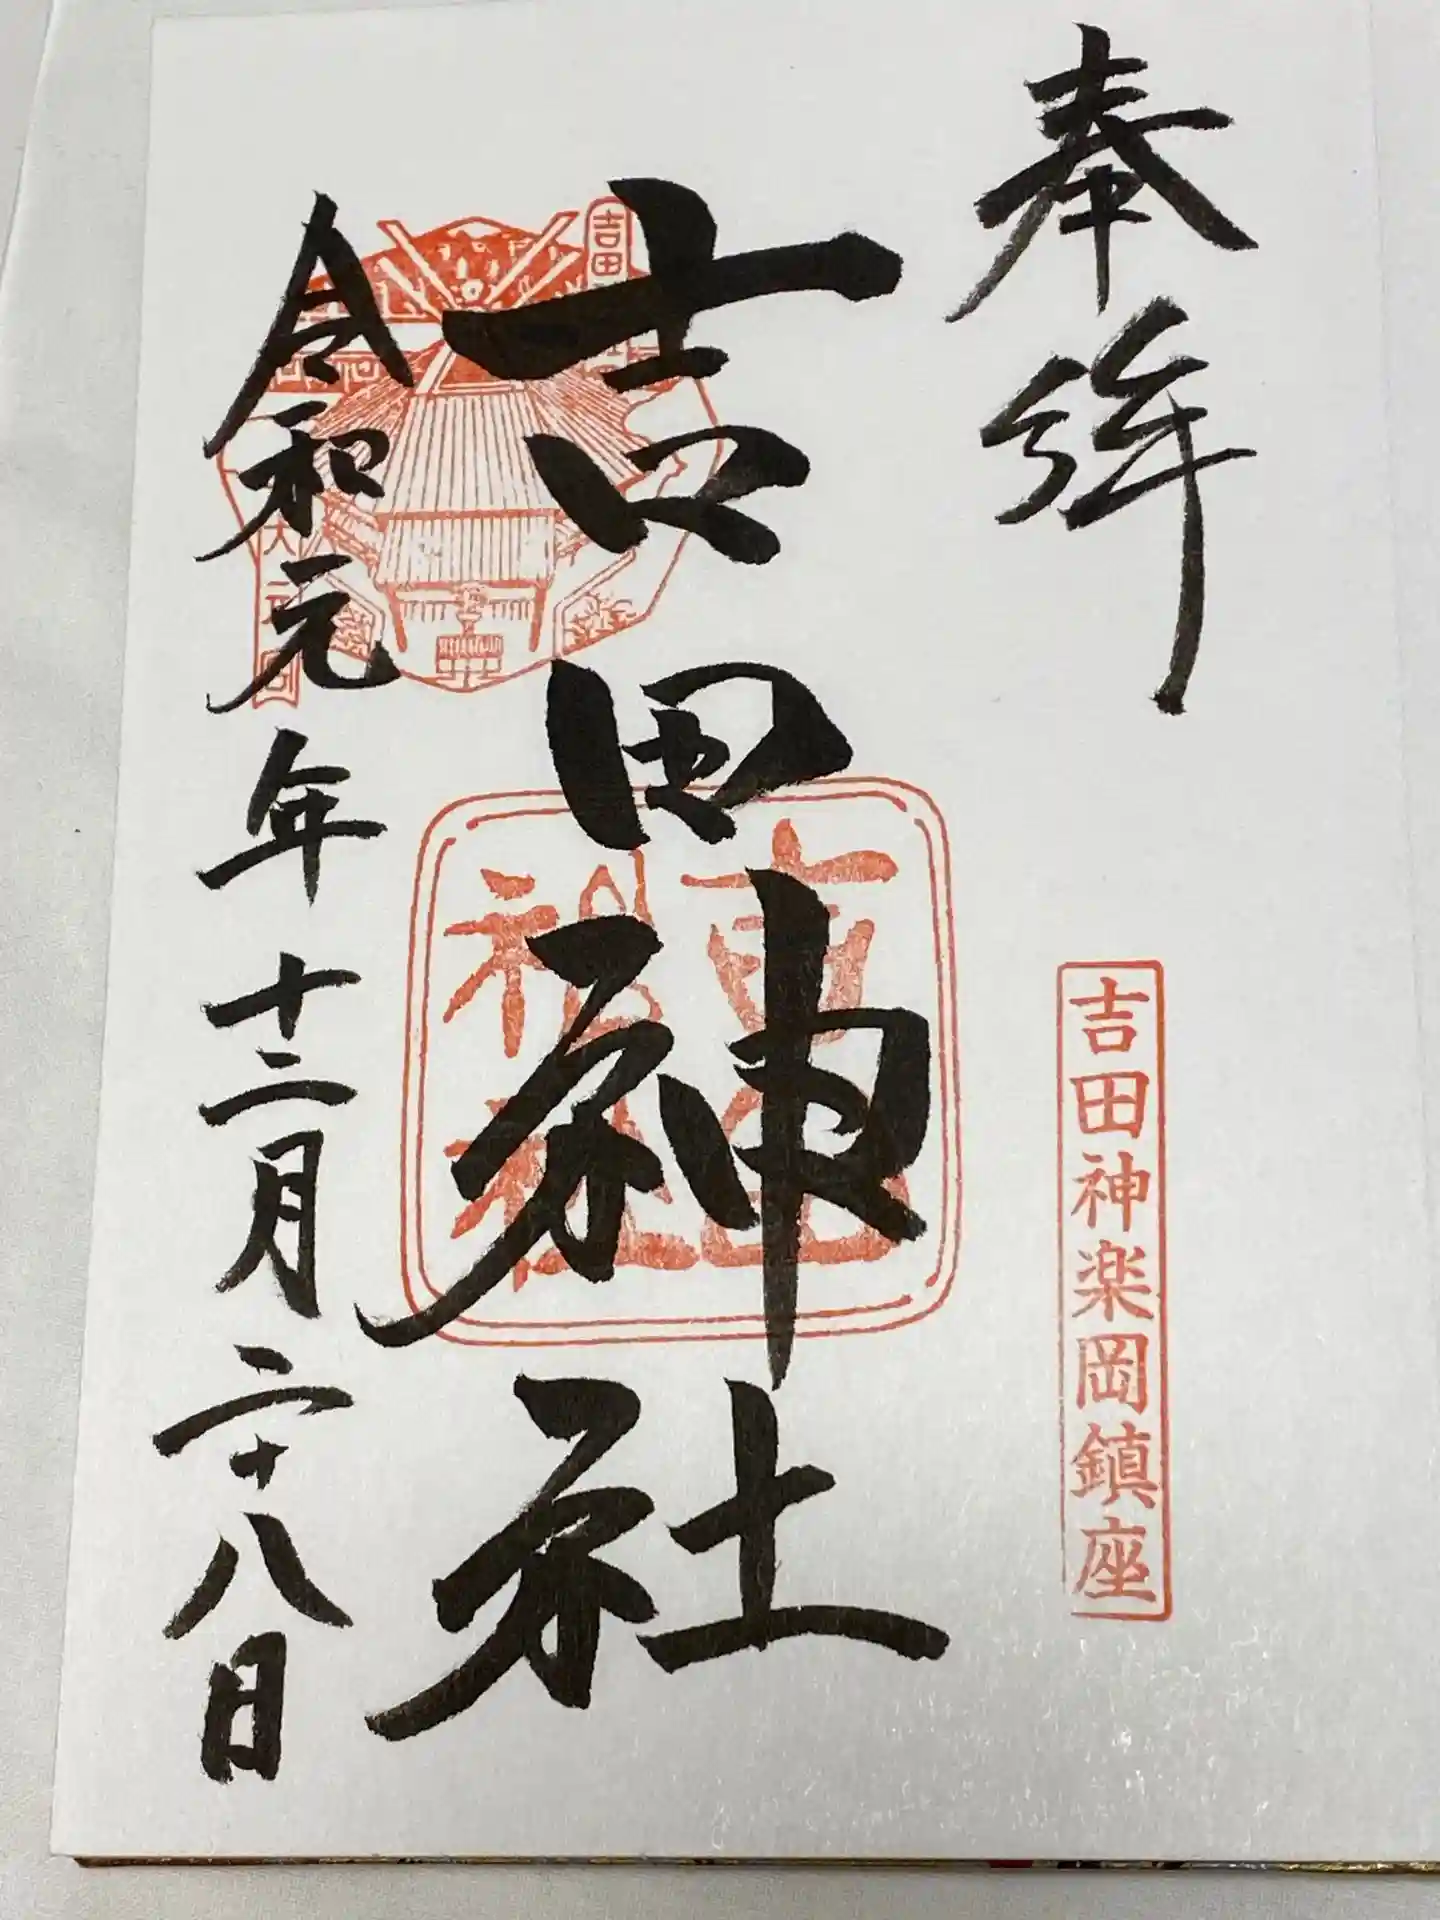 奉拝
吉田神楽岡鎮座
吉田神社
吉田
神社
吉田
大元宮
令和元年十二月二十八日